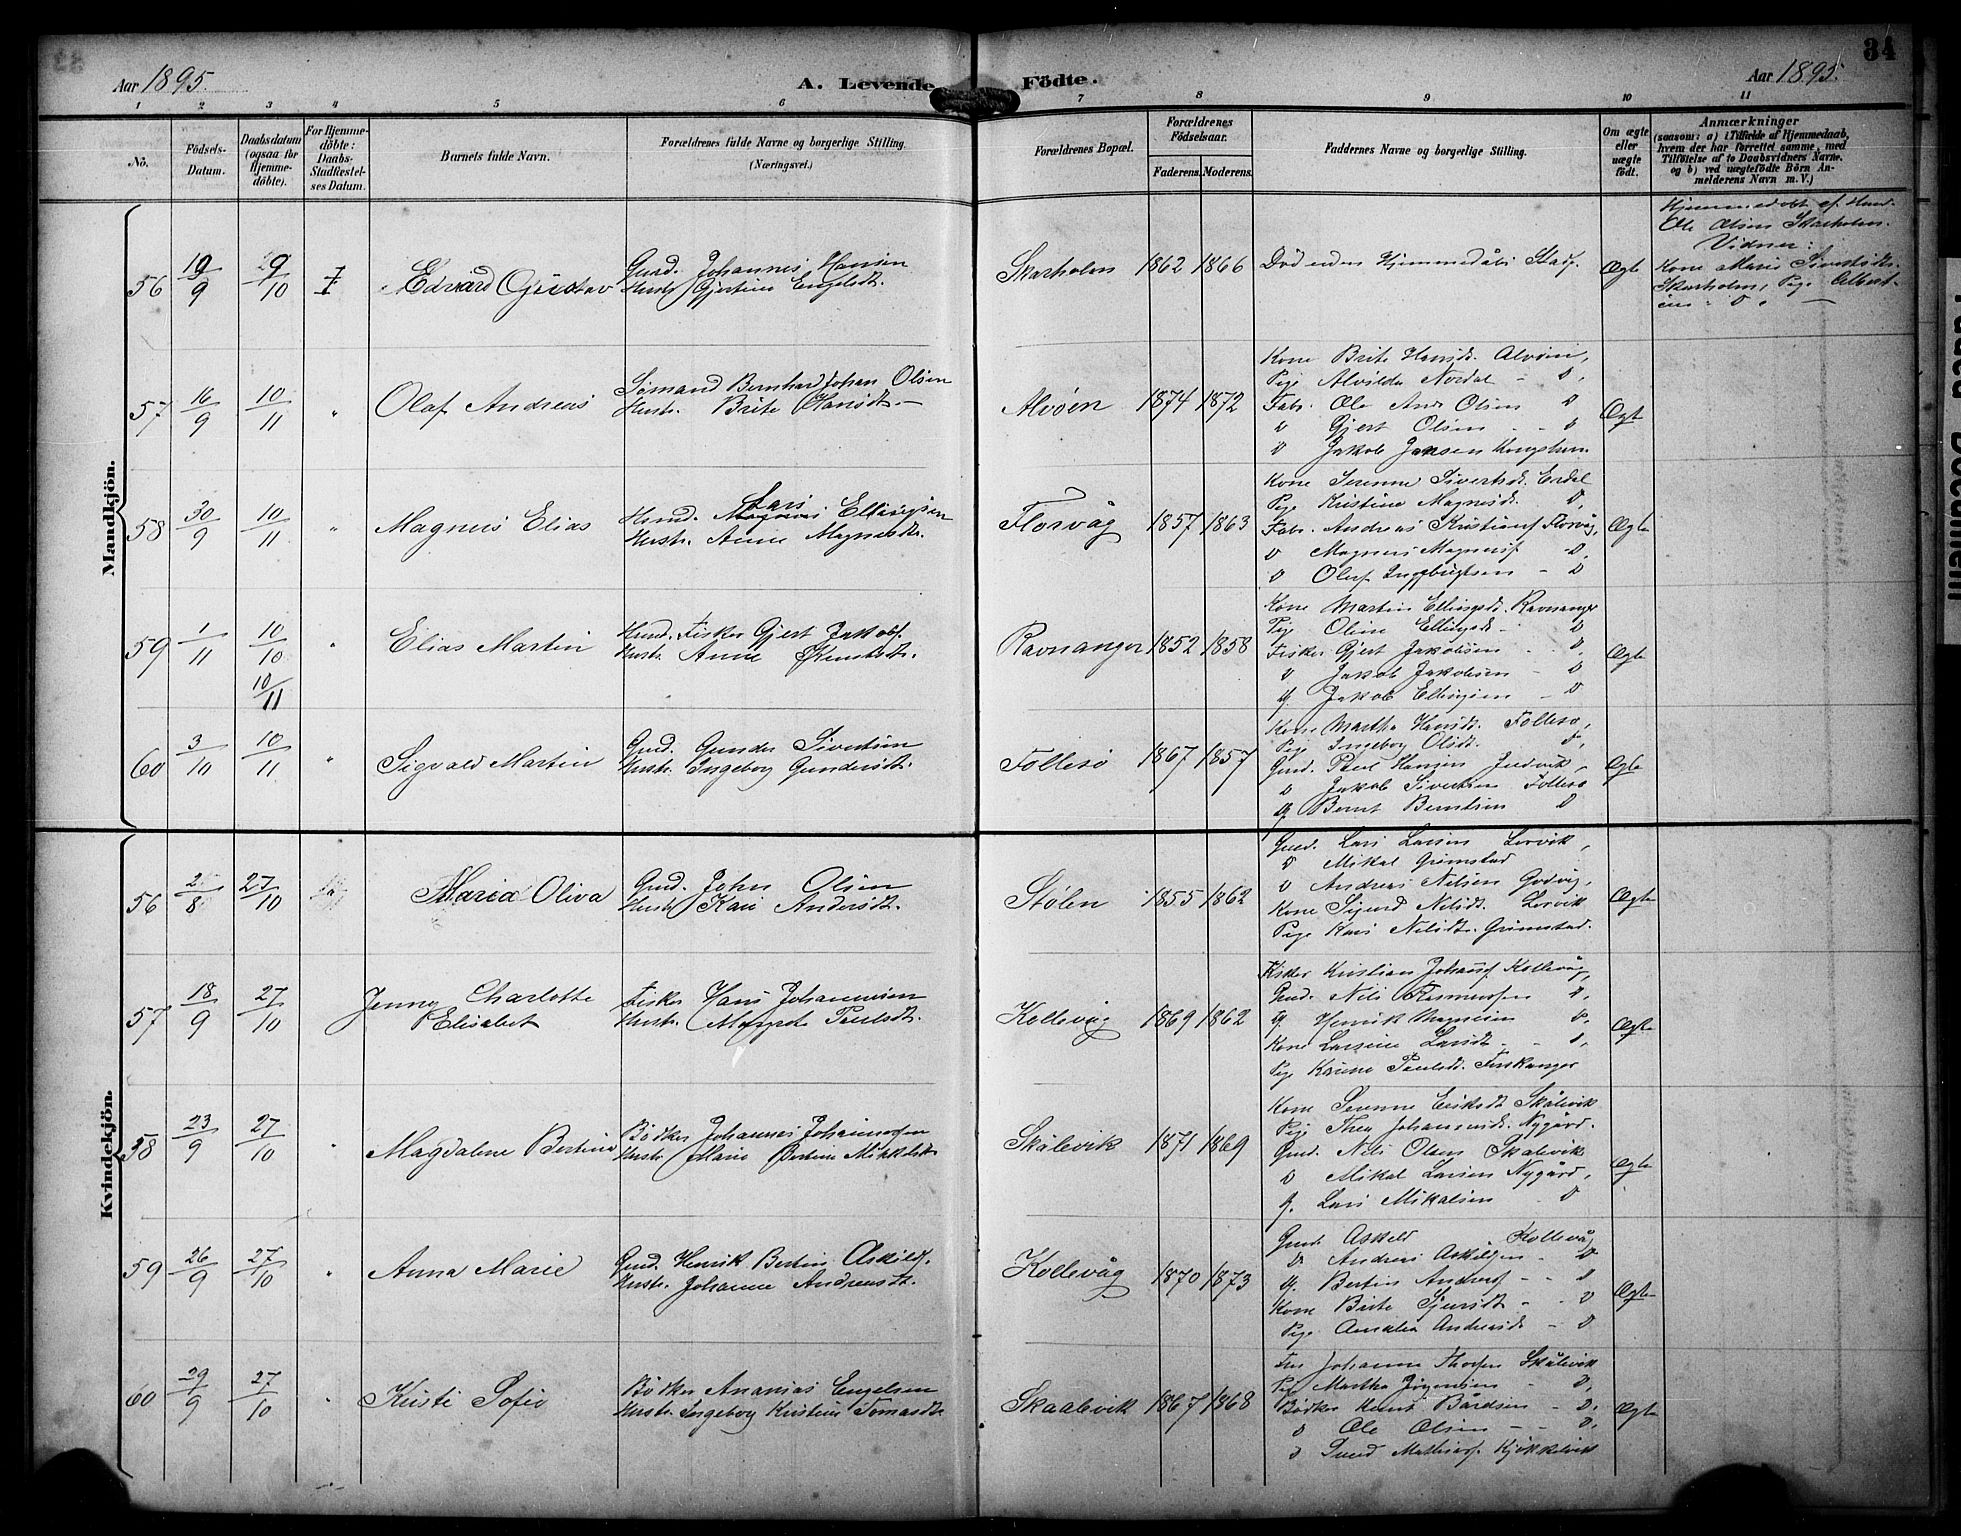 34
Aar 1895.
A. Levende Födte.
Aar 1895.
1 2 3 4 5 6 7 8 9 10 11
No.
Födsels-Datum.
Daabsdatum (ogsaa for Hjemme-döbte).
For Hjemme-döbte: Daabs-Stadfæstel-ses Datum.
Barnets fulde Navn.
Forældrenes fulde Navne og borgerlige Stilling.
(Næringsvei.)
Forældrenes Bopæl.
Forældrenes Födselsaar.
Faderens. Moderens.
Faddernes Navne og borgerlige Stilling.
Om ægte eller uægte födt.
Anmærkninger
(saasom: a) i Tilfælde af Hjemmedaab, hvem der har forrettet samme, med Tilföielse af to Daabsvidners Navne, og b) ved uægtefödte Börn An-melderens Navn m. V.)
Mandkjön.
56 10/9 29/10 Edvard Gjustav
Gmd. Johannes Hansen
Hustr. Gjertine Engelsdt.
Skarholm 1862 1866 Död uden Hjemmedåbs Stadf. Ægte
Hjemmedöbt af
Ole Olsen Skarholm.
Vidner:
Kone Marie Sivertsdt.
Skarholm, Pige Albert-
ine " D "
57 16/9 10/11 " Olaf Andreas
Sømand Bernhard Johan Olsen
Hustr. Brite Hansdt. —
Alvøen 1874 1872
Kone Brite Hansdt. Alvøen,
Pige Alvilda Nordal - D,
Fabr. Ole And. Olsen D
D Gjert Olsen - - D
D Jakob Jansen
Ægte
58 30/9 10/11 " Magnus Elias
Hmd. Lars Ellingsen
Hustr. Anne Magnesdtr.
Florvåg 1857 1863
Kone Serenne Sivertsd. Erdal
Pige Kristine Magnesdt. D,
Fabr. Andreas Kristiansf Florvåg,
D Magnus Magnesf D.
D Oluf Ingebrigtsen - D
Ægte
59 1/11 10/10 " Elias Martin
10/11
Hmd. Fisker Gjert Jakobs.
Hustr. Anne Knutsdt.
Ravnanger 1852 1858
Kone Martin Ellingsdt. Ravnanger
Pig Oline Ellingsdt - D
Fisker Gjert Jakobsen - D,
D Jakob Jakobsen - D
G. Jakob Ellingsen - D
Ægte
60 3/10 10/11 " Sigvald Martin
Gmd. Gunder Sivertsen
Hustr. Ingeborg Gundersdt.
Follesø 1867 1857
Kone Martha Hansdt. Follesø,
Pige Ingeborg Olsdt. D,
Gmd. Paul Hansen Judvik,
D Jakob Sivertsen Follesø
G. Bernt Berntsen D
Ægte
Kvindekjön.
56 2/8 27/10 Maria Oliva
Gmd. John Olsen
Hustr. Kari Andersdt.
Stølen 1855 1862
Gmd. Lars Larsen Lervik,
D Mikal Grimstad
D Andreas Nilsen Godvig,
Kone Sigurd Nilsdt. Lervik
Pige Kari Nilsdt. Grimstad.
Ægte
57 18/9 27/10 Jenny Charlotte
Elisabet
Fisker Hans Johannesen
Hustr. Margrete Paulsdt.
Kollevåg 1869 1862
Fisker Kristian Johansf Kollevåg,
Gmd. Nils Rasmussen D,
G. Henrik Magnesen D,
Kone Larsine Larsdt - - D,
Pige Karine Paulsdt.
Ægte
58 23/9 27/10 " Magdalene Bertine
Bödker Johannes Johannessen
Hustr. Marie Bertine Mikkelsdt
Skålevik 1871 1869
Kone Serenne Eriksdt Skålevik
Pige Thea Johannesdt. Nygård.
Gmd. Nils Olsen Skålevik
D Mikal Larsen Nygård,
G. Lars Mikalsen - D
Ægte
59 26/9 27/10 " Anna Marie
Gmd. Henrik Bertin Askilds.
Hustr. Johanne Andreasdt.
Kollevåg 1870 1873
Gmd. Askeld Kollevåg
D Andreas Askildsen - D
G. Bertin Andersf - - D
Kone Brite Sjursdt - - D
Pige Amalia Andersdt - D
Ægte
60 29/9 27/10 " Kristi Sofie
Bødker Ananias Engelsen
Hustr. Ingeborg Kristine Tomasdt.
Skaalevik 1867 1868
Fru Johanne Thorsen Skålevik
Pig Martha Jörgensen - D,
Bödker Knut Bårdsen - D,
D Ole Olsen - - D,
D Mathiasf. Kjökkelvik
Ægte